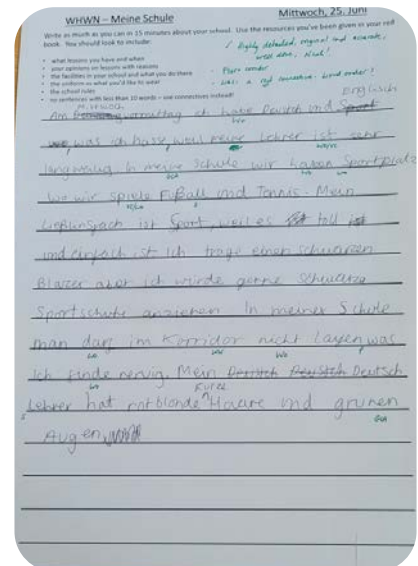 WHWN – Meine Schule
Mittwoch, 25. Juni
Write as much as you can in 15 minutes about your school. Use the resources you've been given in your red
book. You should look to include:
what lessons you have and when
your opinions on lessons with reasons
the facilities in your school and what you do there
the uniform or what you'd like to wear
the school rules
no sentences with less than 10 words – use connectives instead!
✓ Highly detailed, original and accurate,
well done,
word order!
Mittwoch
englisch
Am vormittag ich habe Deutsch und
was ich hasse, weil meine Lehrer ist sehr
langweilig. In meine Schule wir haben Sportplatz
wo wir spiele Fußball und Tennis. Mein
Lieblinsfach ist Sport, weil es toll
und einfach ist. Ich trage einen schwarzen
Blazer aber ich würde gerne schwarze
Sportschuhe anziehen. In meiner Schule
man darf im Korridor nicht laufen, was
ich finde nervig. Mein Deutsch
kurze
Lehrer hat rotblonde Haare und grunen
Augen